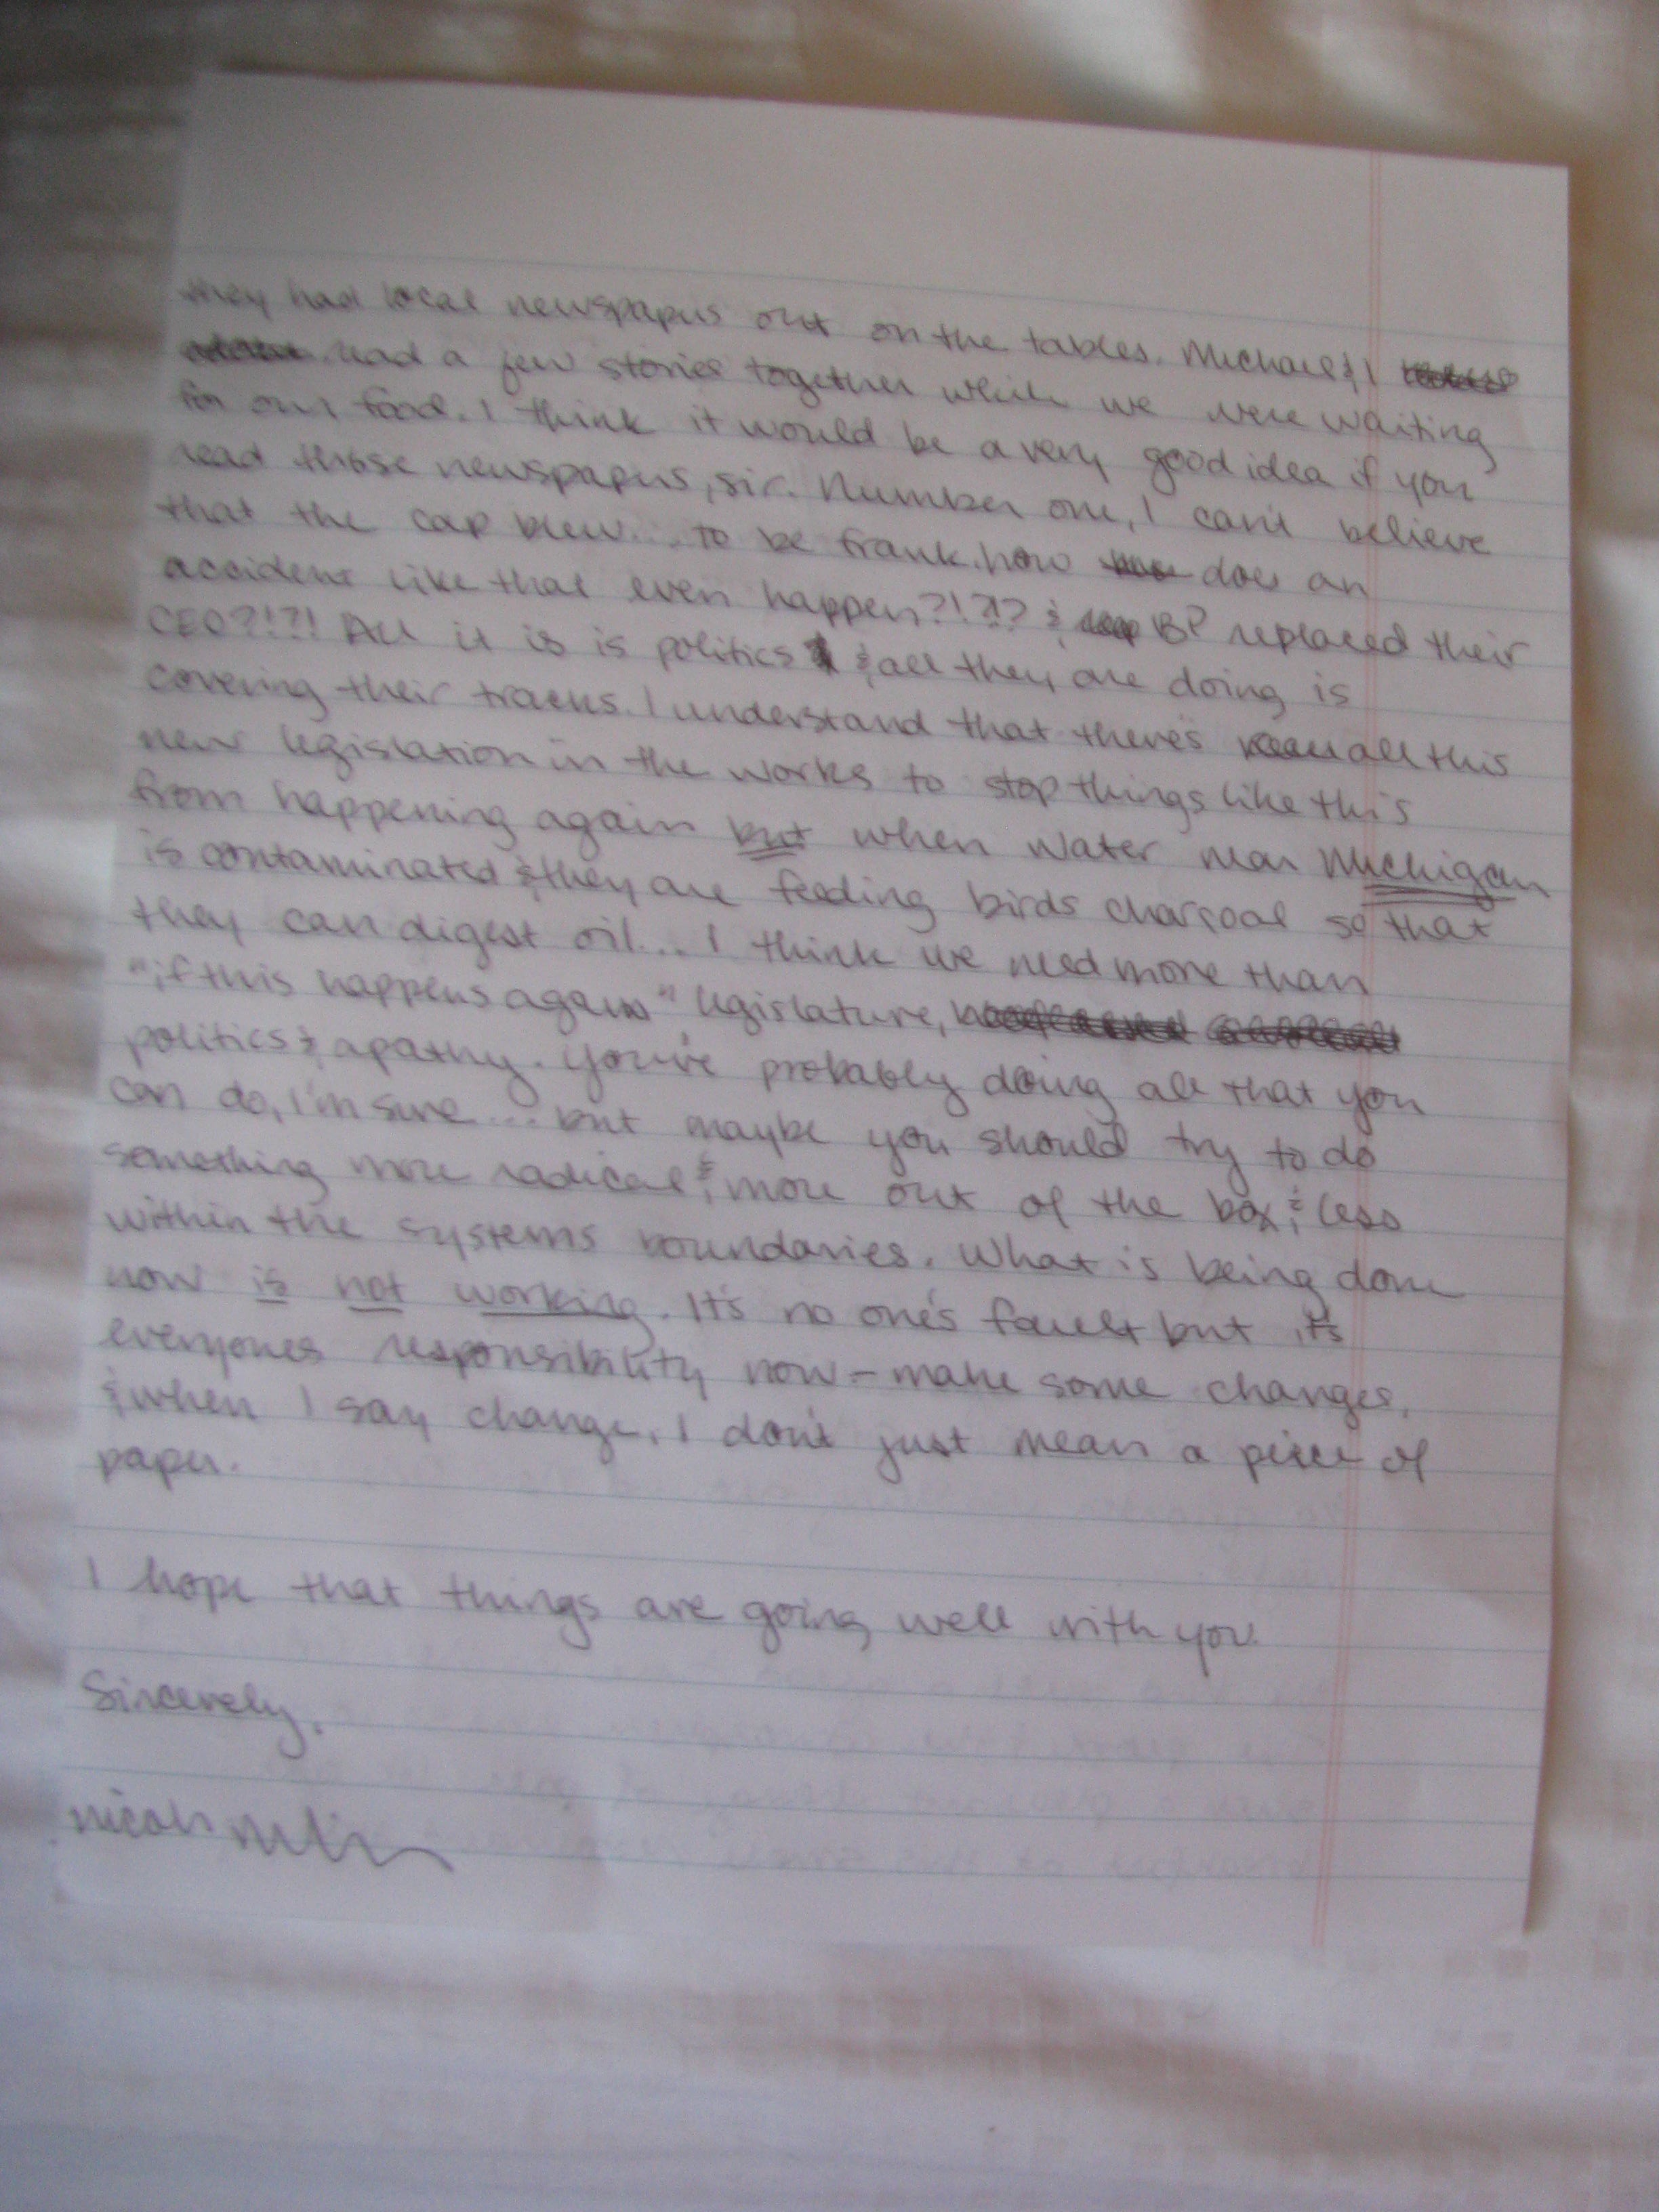 they had local newspapers out on the tables. Michael & I
read a few stories together while we were waiting
for our food. I think it would be a very good idea if you
read those newspapers, sir. Number one, I can't believe
that the cap blew... to be frank, how does an
accident like that even happen?!?!? & BP replaced their
CEO?!?! All it is is politics & all they are doing is
covering their tracks. I understand that there's all this
new legislation in the works to stop things like this
from happening again but when water near Michigan
is contaminated & they are feeding birds charcoal so that
they can digest oil... I think we need more than
"if this happens again" legislature,
politics & apathy. You're probably doing all that you
can do, I'm sure... but maybe you should try to do
something more radical & more out of the box & less
within the systems boundaries. What is being done
now is not working. It's no one's fault but it's
everyones responsibility now - make some changes,
& when I say change, I don't just mean a peice of
paper.
I hope that things are going well with you.
Sincerely,